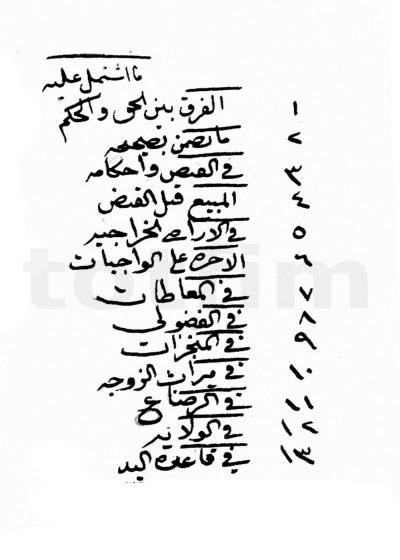 ما اشتمل عليه
١ الفرق بين الحق والحكم
٢ ما يضمن بصحيحه
٣ في القبض واحكامه
٤ المبيع قبل القبض
٥ في الاراضي الخراجيه
٦ الاجرة على الواجبات
٧ في المعاطات
٨ في الفضولى
٩ في المنجزات
١٠ في ميراث الزوجه
١١ في الرضاع
١٢ في الولايه
١٣ في قاعدة اليد
tobim